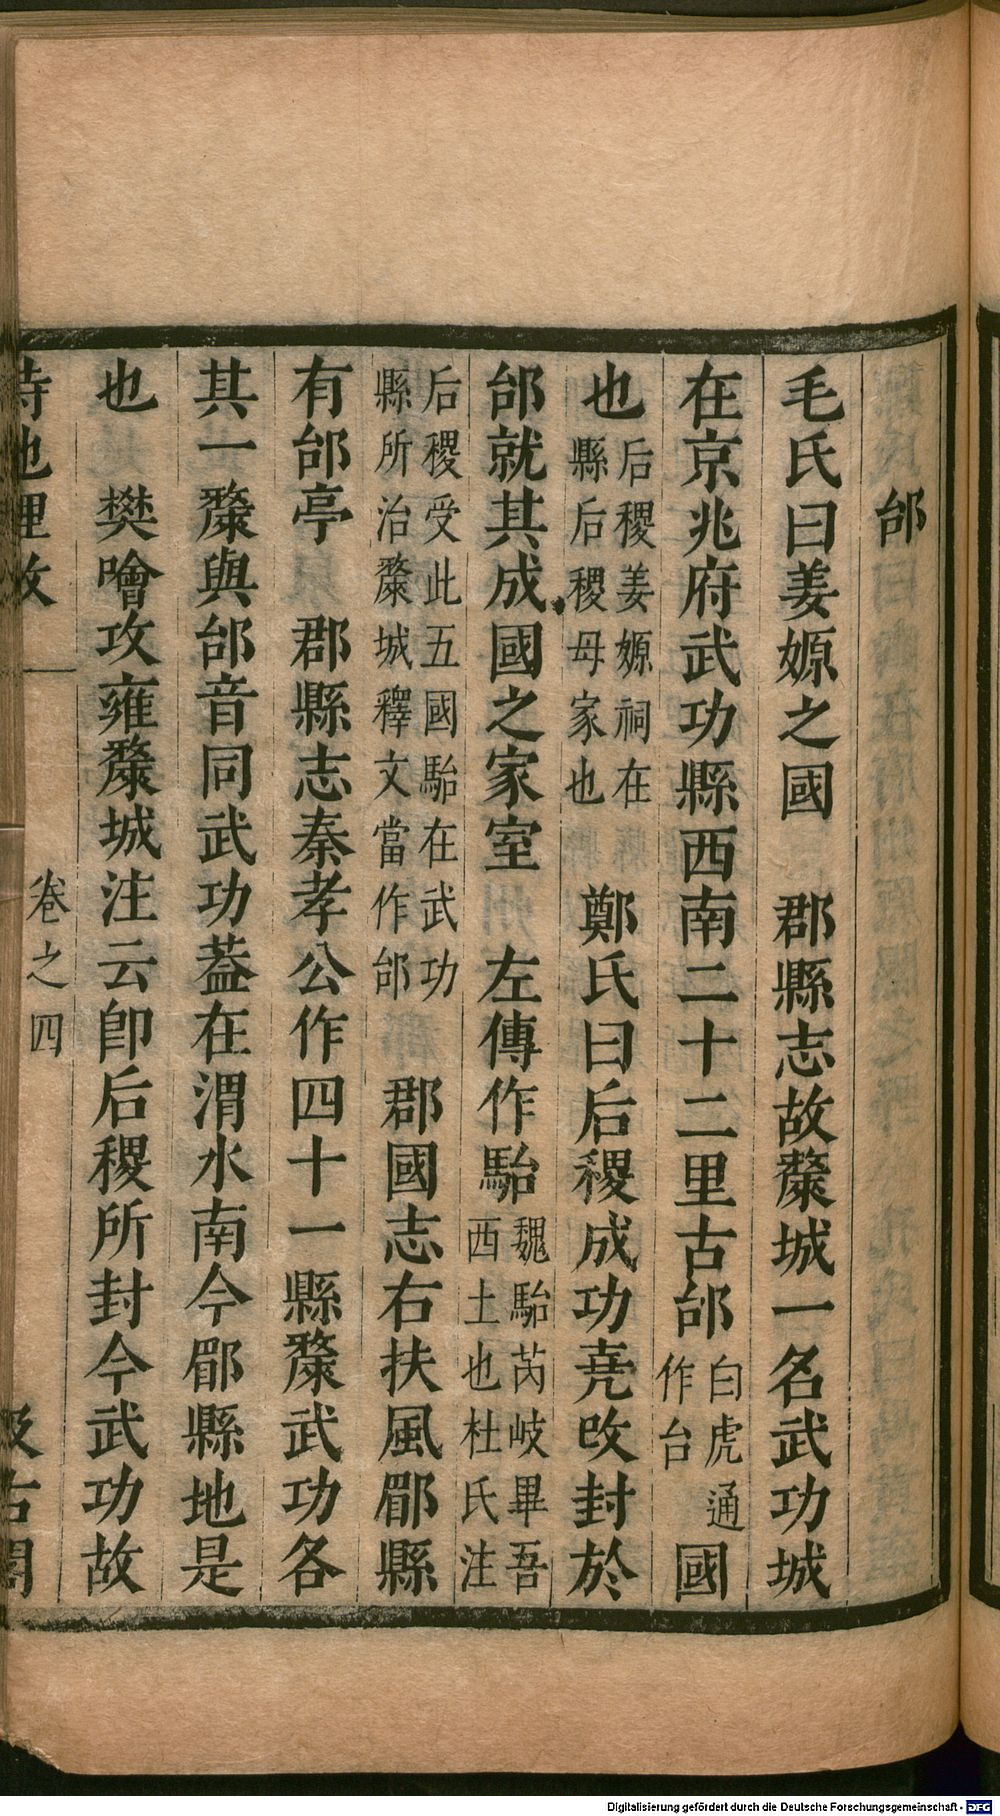 邰
毛氏曰姜嫄之國　郡縣志故斄城一名武功城
在京兆府武功縣西南二十二里古邰白虎通作台國
也后稷姜嫄祠在縣后稷母家也　鄭氏曰后稷成功堯改封於
邰就其成國之家室　左傳作駘魏駘芮岐畢吾西土也杜氏注
后稷受此五國駘在武功縣所治斄城釋文當作邰　郡國志右扶風郿縣
有邰亭　郡縣志秦孝公作四十一縣斄武功各
其一斄與邰音同武功葢在渭水南今郿縣地是
也　樊噲攻雍斄城注云卽后稷所封今武功故
詩地理攷　卷之四　汲古閣
Digitalisierung gefördert durch die Deutsche Forschungsgemeinschaft - DFG